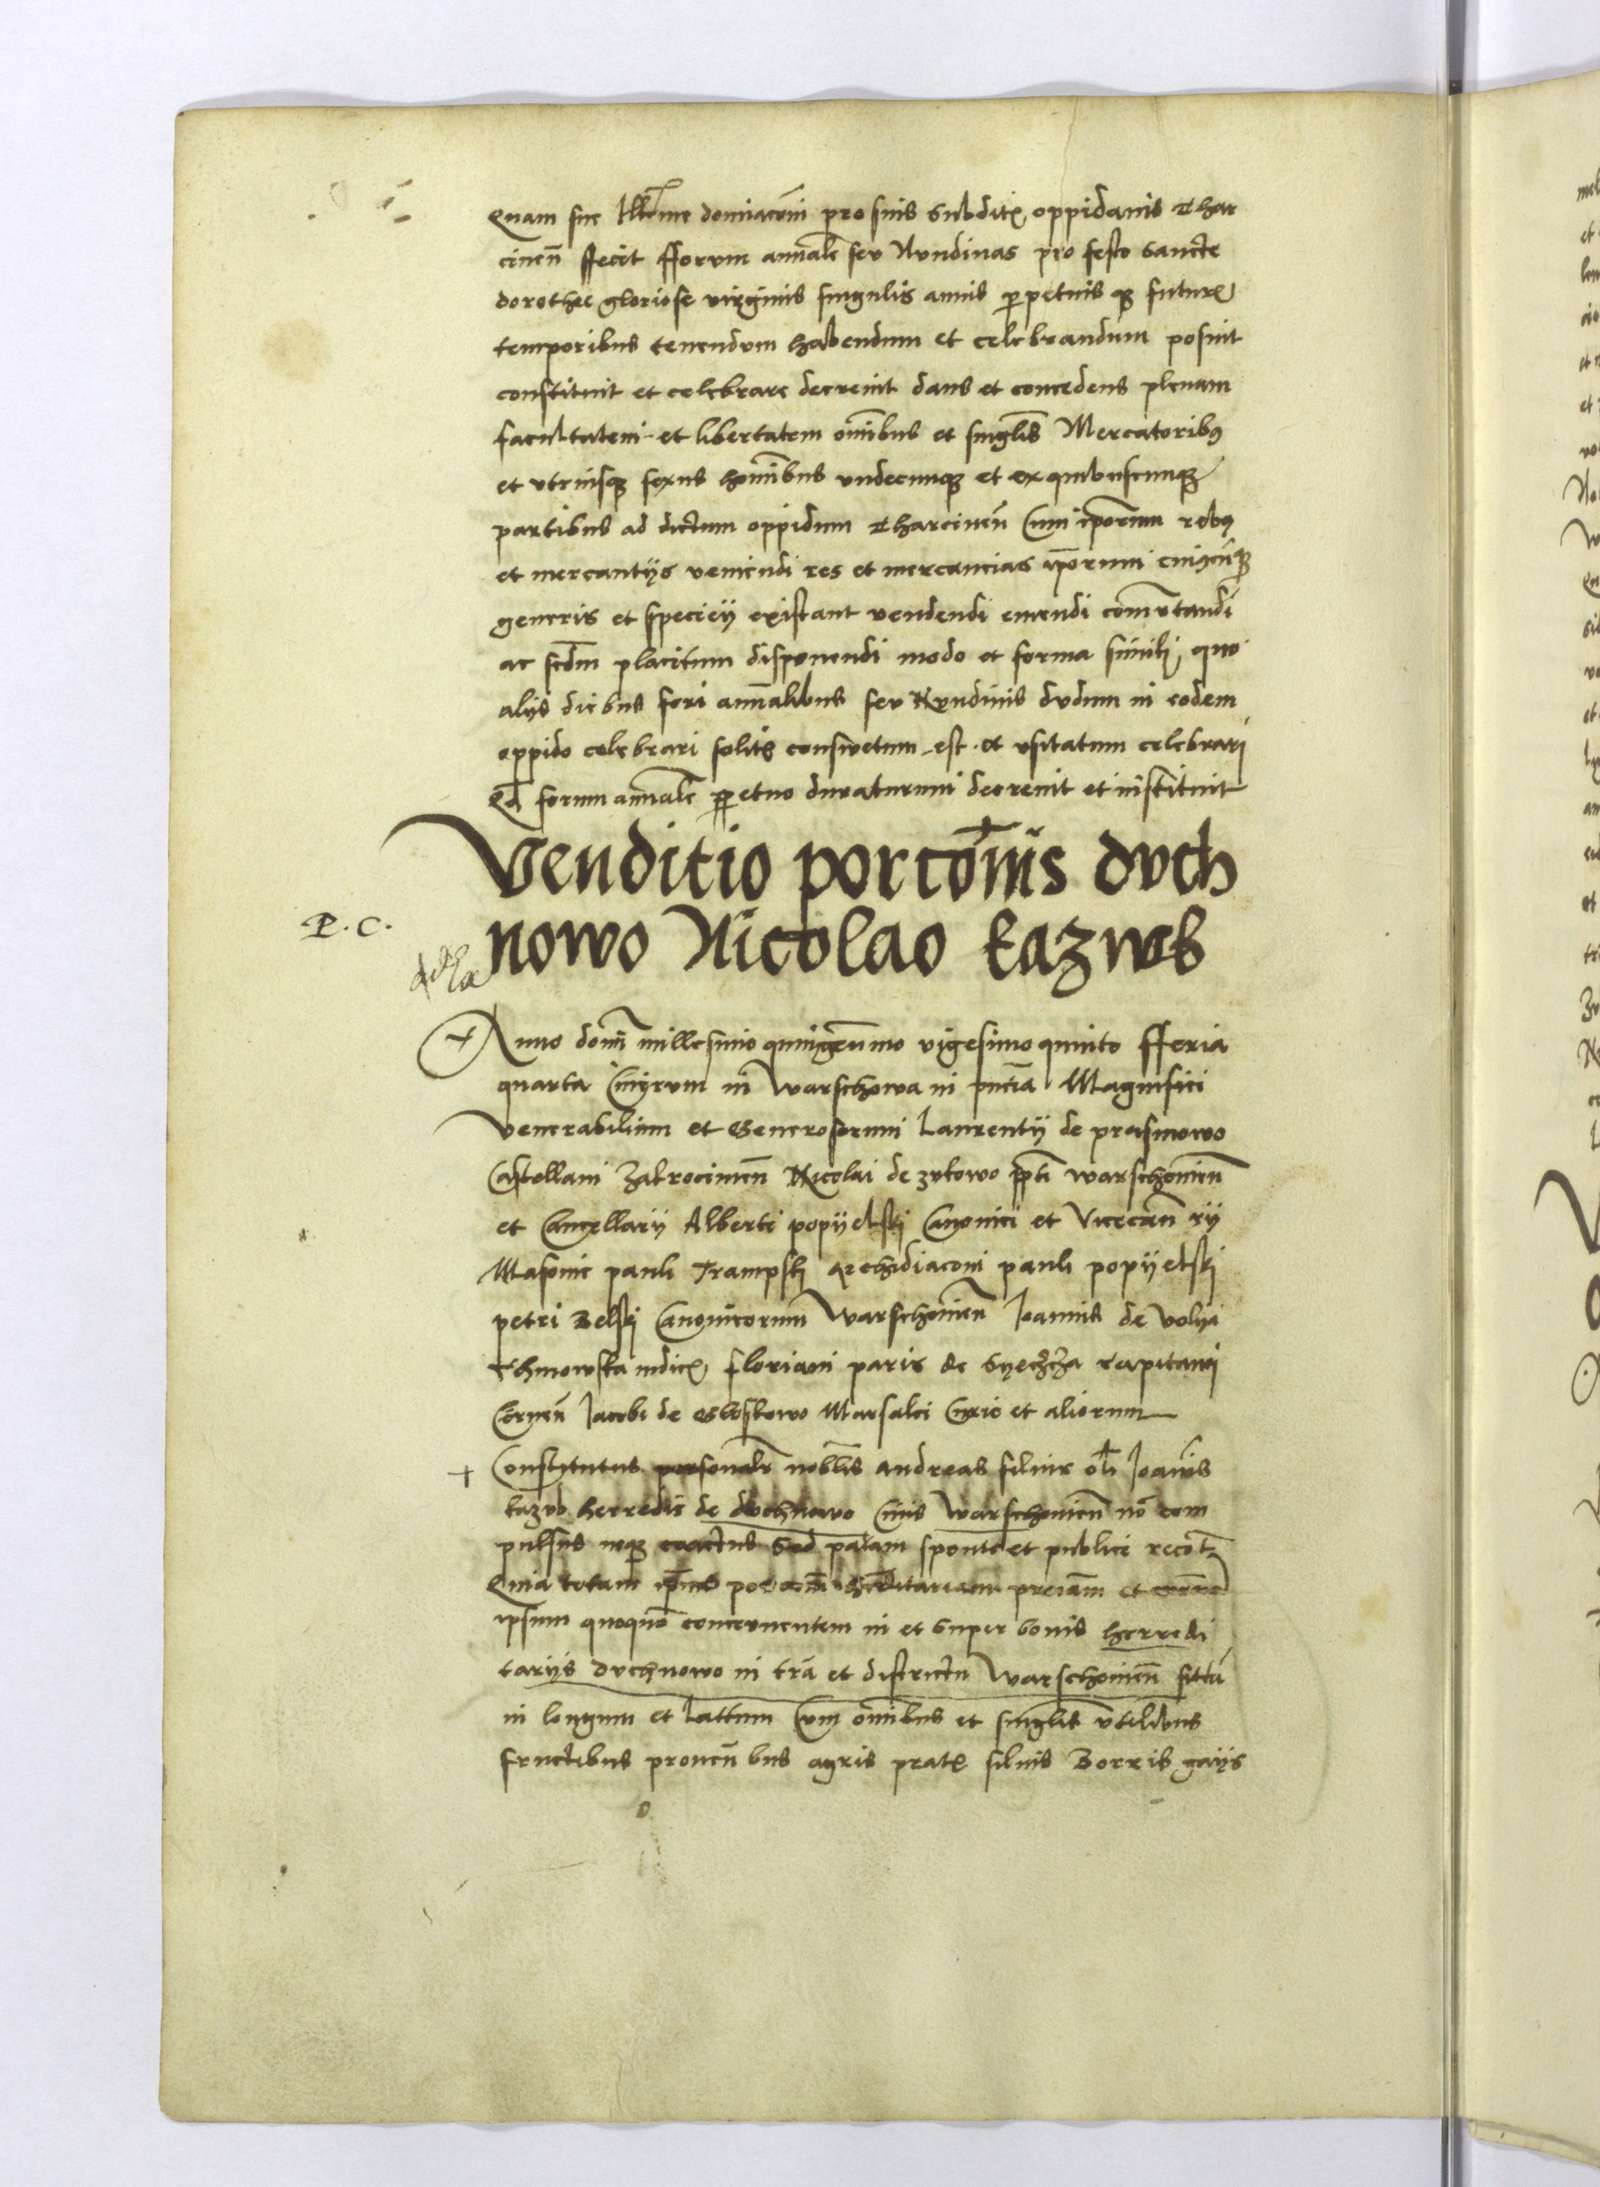 Quam sue Illme dominacōni pro suis subditꝭ oppidanis Thar
cinēn ffecit fforum annale seu Nundinas pro festo Sancte
dorothee gloriose virginis singulis annis ꝑpetuis qꝫ futurꝭ
temporibus tenendum habendum et celebrandum posuit
constituit et celebrare decreuit dans et concedens plenam
facultatem et libertatem omībus et singlīs Mercatoribꝰ
et vtriusqꝫ sexus homībus vndecunqꝫ et ex quibuscunqꝫ
partibus ad dictum oppidum Tharcinēn Cum ipōrum rebꝰ
et mercantijs veniendi res et mercancias ipōrum cuiuscūqꝫ
generis et speciey existant vendendi emendi comutandi
ac scdm placitum disponendi modo et forma simili, quo
alijs diebus fori annālibus seu Nundinis dudum in eodem
oppido celebrari solitꝭ consuetum est et vsitatum celebrari
Qd forum annāle ꝑpetuo duraturum decreuit et instituit
Venditio porcōnis duch
nowo Nicolao Eazwb
P. C.
Anno domī millesimo quingenmo vigesimo quinto fferia
quarta Cinerum in Warschowa in pntia Magnifici
Venerabilium et Generosorum Laurentij de prasmowo
Castellani Zakrocimēn Nicolai de zukowo ppti warschouiēn
et Cancellarij Alberti popyelski Canonici et Vicecan rij
Masouie pauli Trampski Archidiaconi pauli popyelski
petri Belski Canonicorum Warschouiēn Joannis de Volya
Chmowska iudicꝭ floriani paris de Capitanei
Cernēn Jacobi de Marsalci Curie et aliorum
Constitutus personalr noblis andreas filius oli Joanis
kazub herredis de duchnowo Ciuis Warschouiēn nō com
pulsus neqꝫ coactus Sed palam sponte et publice recot
Quia totam ipius porcōem hereditariam preiam et
ipsum quoquo concernentem in et super bonis herredi
tarijs duchnowo in trā et districtu Warschouiēn sittā
in longum et lattum Cum omībus et singlīs vtilibus
fructibus prouen bus agris pratꝭ siluis Borris gaijs